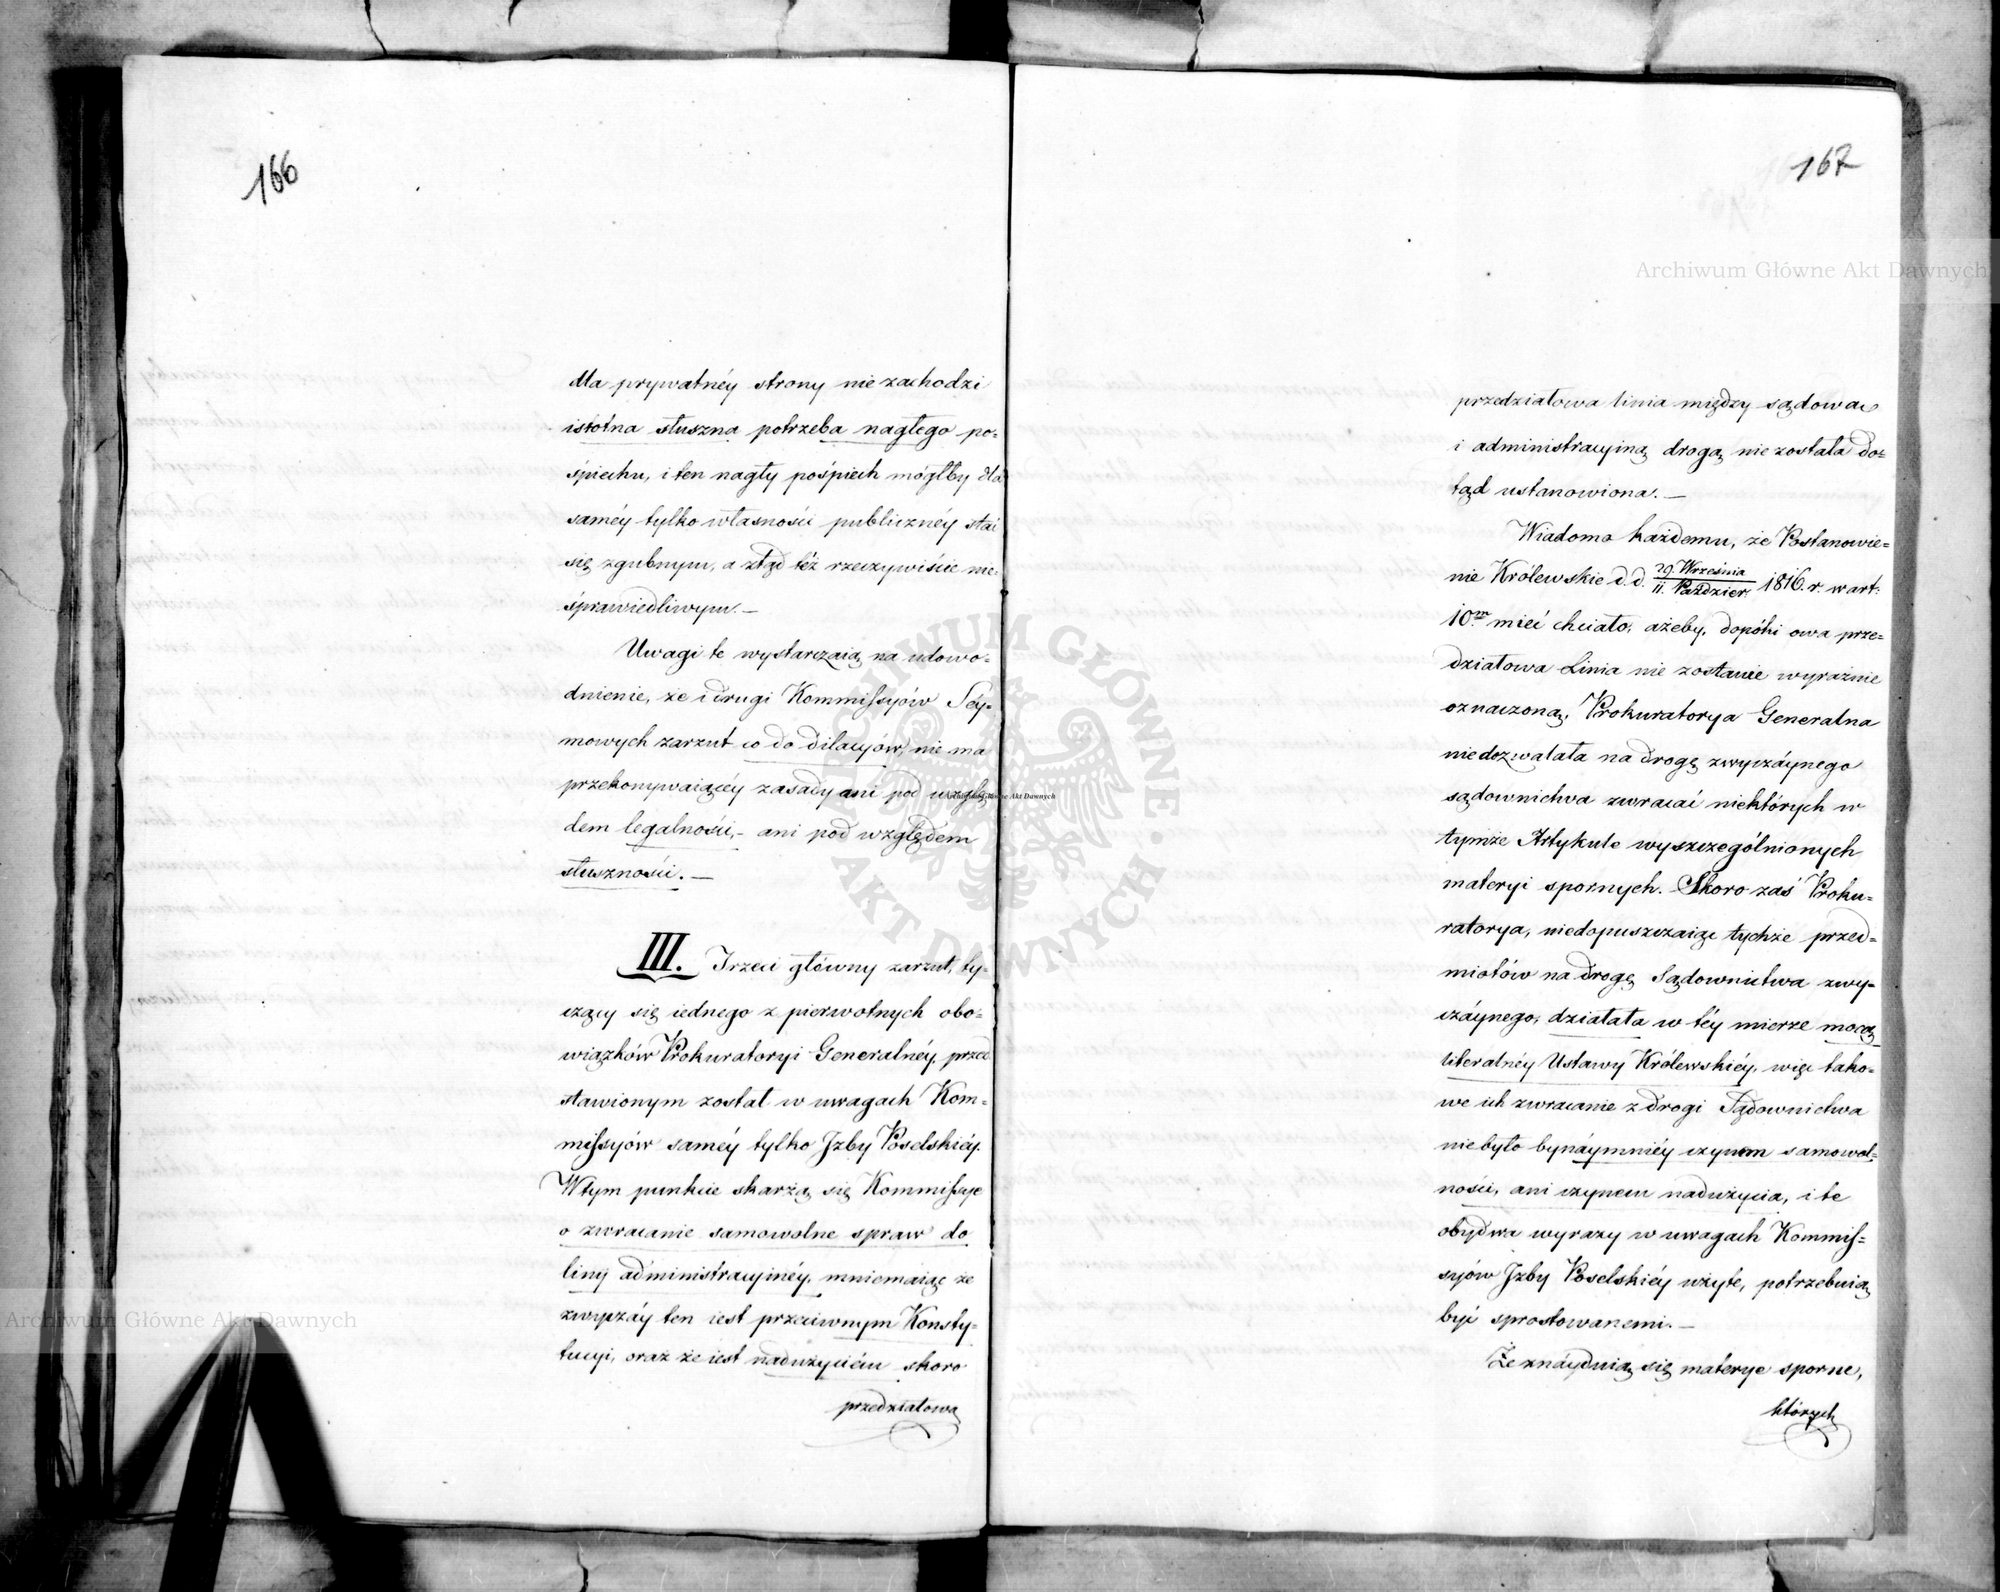 166
dla prywatnéy strony nie zachodzi
istotna słuszna potrzeba nagłego po=
śpiechu, i ten nagły pośpiech mógłby dla
saméy tylko własności publicznéy stać
się zgubnym, a ztąd też rzeczywiście nie=
sprawiedliwym.—
Uwagi te wystarczaią na udowo=
dnienie, że i drugi Kommissyów Sey=
mowych zarzut co do dilacyów, nie ma
przekonywaiącéy zasady ani pod wzglę=
dem legalności,– ani pod względem
słuszności.—
III. Trzeci główny zarzut, ty=
czący się iednego z pierwotnych obo=
wiązków Prokuratoryi Generalnéy, przed
stawionym został w uwagach Kom=
missyów saméy tylko Izby Poselskiéy.
W tym punkcie skarżą się Kommissye
o zwracanie samowolne spraw do
linij administracyinéy, mniemaiąc że
zwyczáy ten iest przeciwnym Konsty=
tucyi, oraz że iest nadużyciem skoro
przedziałowa
167
przedziałowa linia między sądową
i administracyiną drogą nie została do=
tąd ustanowiona.—
Wiadomo każdemu, że Postanowie=
nie Królewskie d. d. 29. Września / 11. Paździer. 1816. r. w art:
10.m mieć chciało, ażeby, dopóki owa prze=
działowa Linia nie zostanie wyraźnie
oznaczoną, Prokuratorya Generalna
niedozwalała na drogę zwyczáynego
sądownictwa zwracać niektórych w
tymże Artykule wyszczególnionych
materyi spornych. Skoro zaś Proku=
ratorya, niedopuszczaiąc tychże przed=
miotów na drogę Sądownictwa zwy=
czáynego, działała w téy mierze mocą
literalnéy Ustawy Królewskiéy, więc tako=
we ich zwracanie z drogi Sądownictwa
nie było bynáymniéy czynem samowol=
ności, ani czynem nadużycia, i te
obydwa wyrazy w uwagach Kommis=
syów Izby Poselskiéy użyte, potrzebuią
być sprostowanemi.—
Że znáyduią się materye sporne,
których
Archiwum Główne Akt Dawnych
Archiwum Główne Akt Dawnych
Archiwum Główne Akt Dawnych
ARCHIWUM GŁÓWNE AKT DAWNYCH